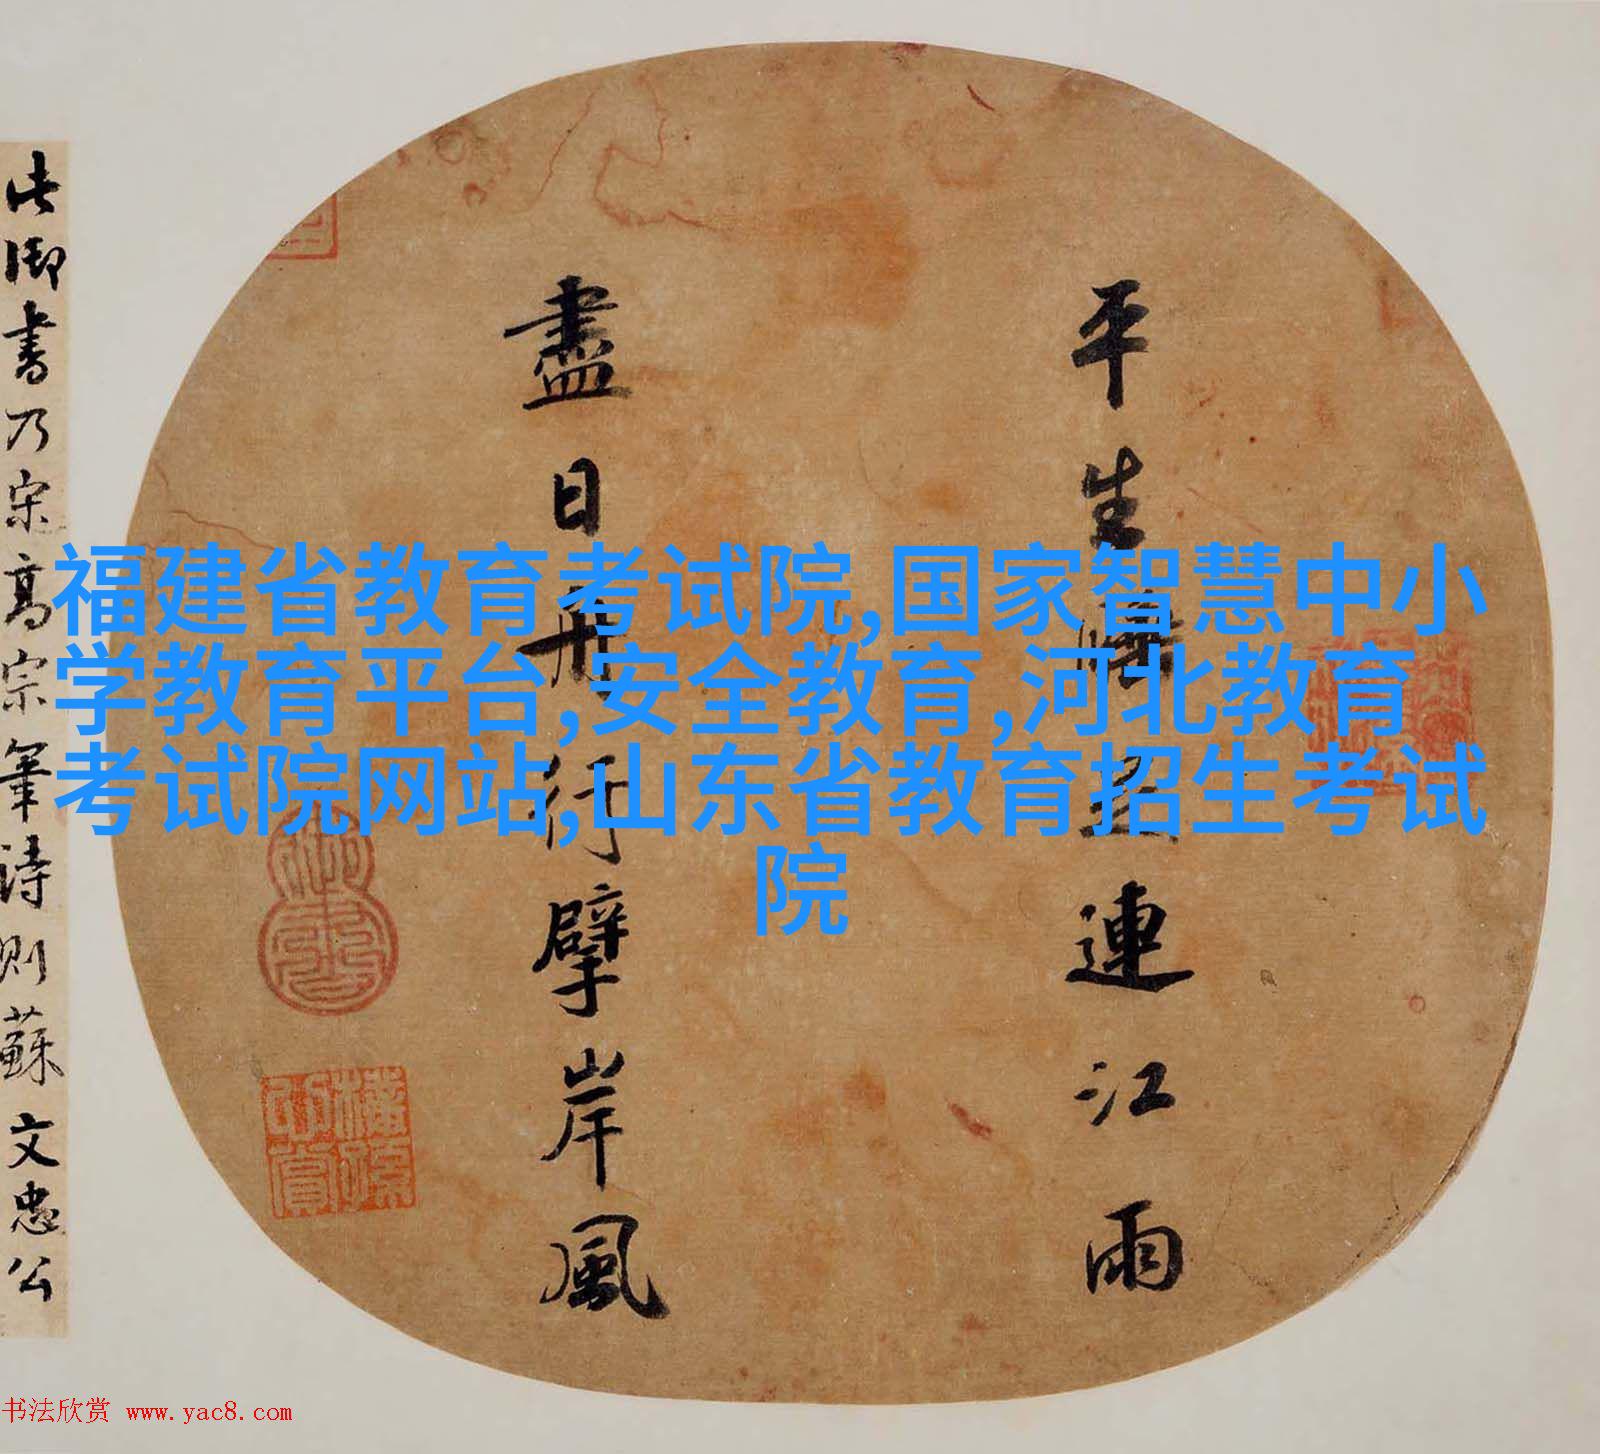 福建省教育考试院,国家智慧中小
学教育平台,安全教育,河北教育
考试院网站,山东省教育招生考试
院
平生睡足連江雨
盡日舟行擘岸風
此御書乃宋高宗筆詩則蘇文忠公
书法欣赏 www.yac8.com